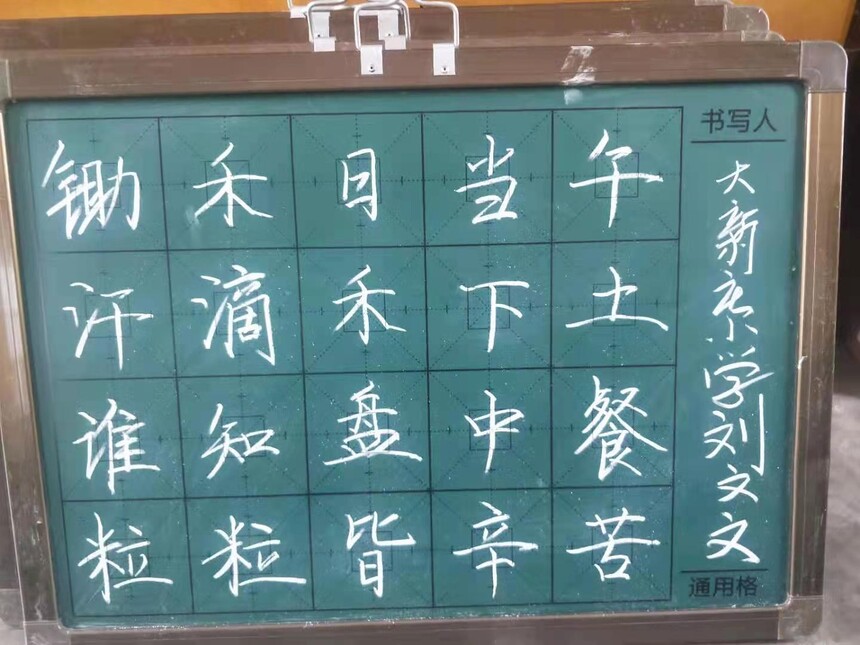 锄禾日当午
汗滴禾下土
谁知盘中餐
粒粒皆辛苦
书写人
大新庄小学刘文文
通用格